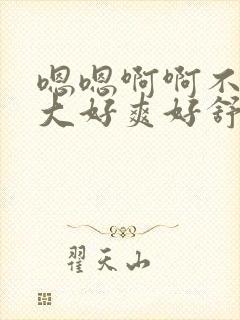 嗯嗯啊啊不
大好爽好舒
翟天山